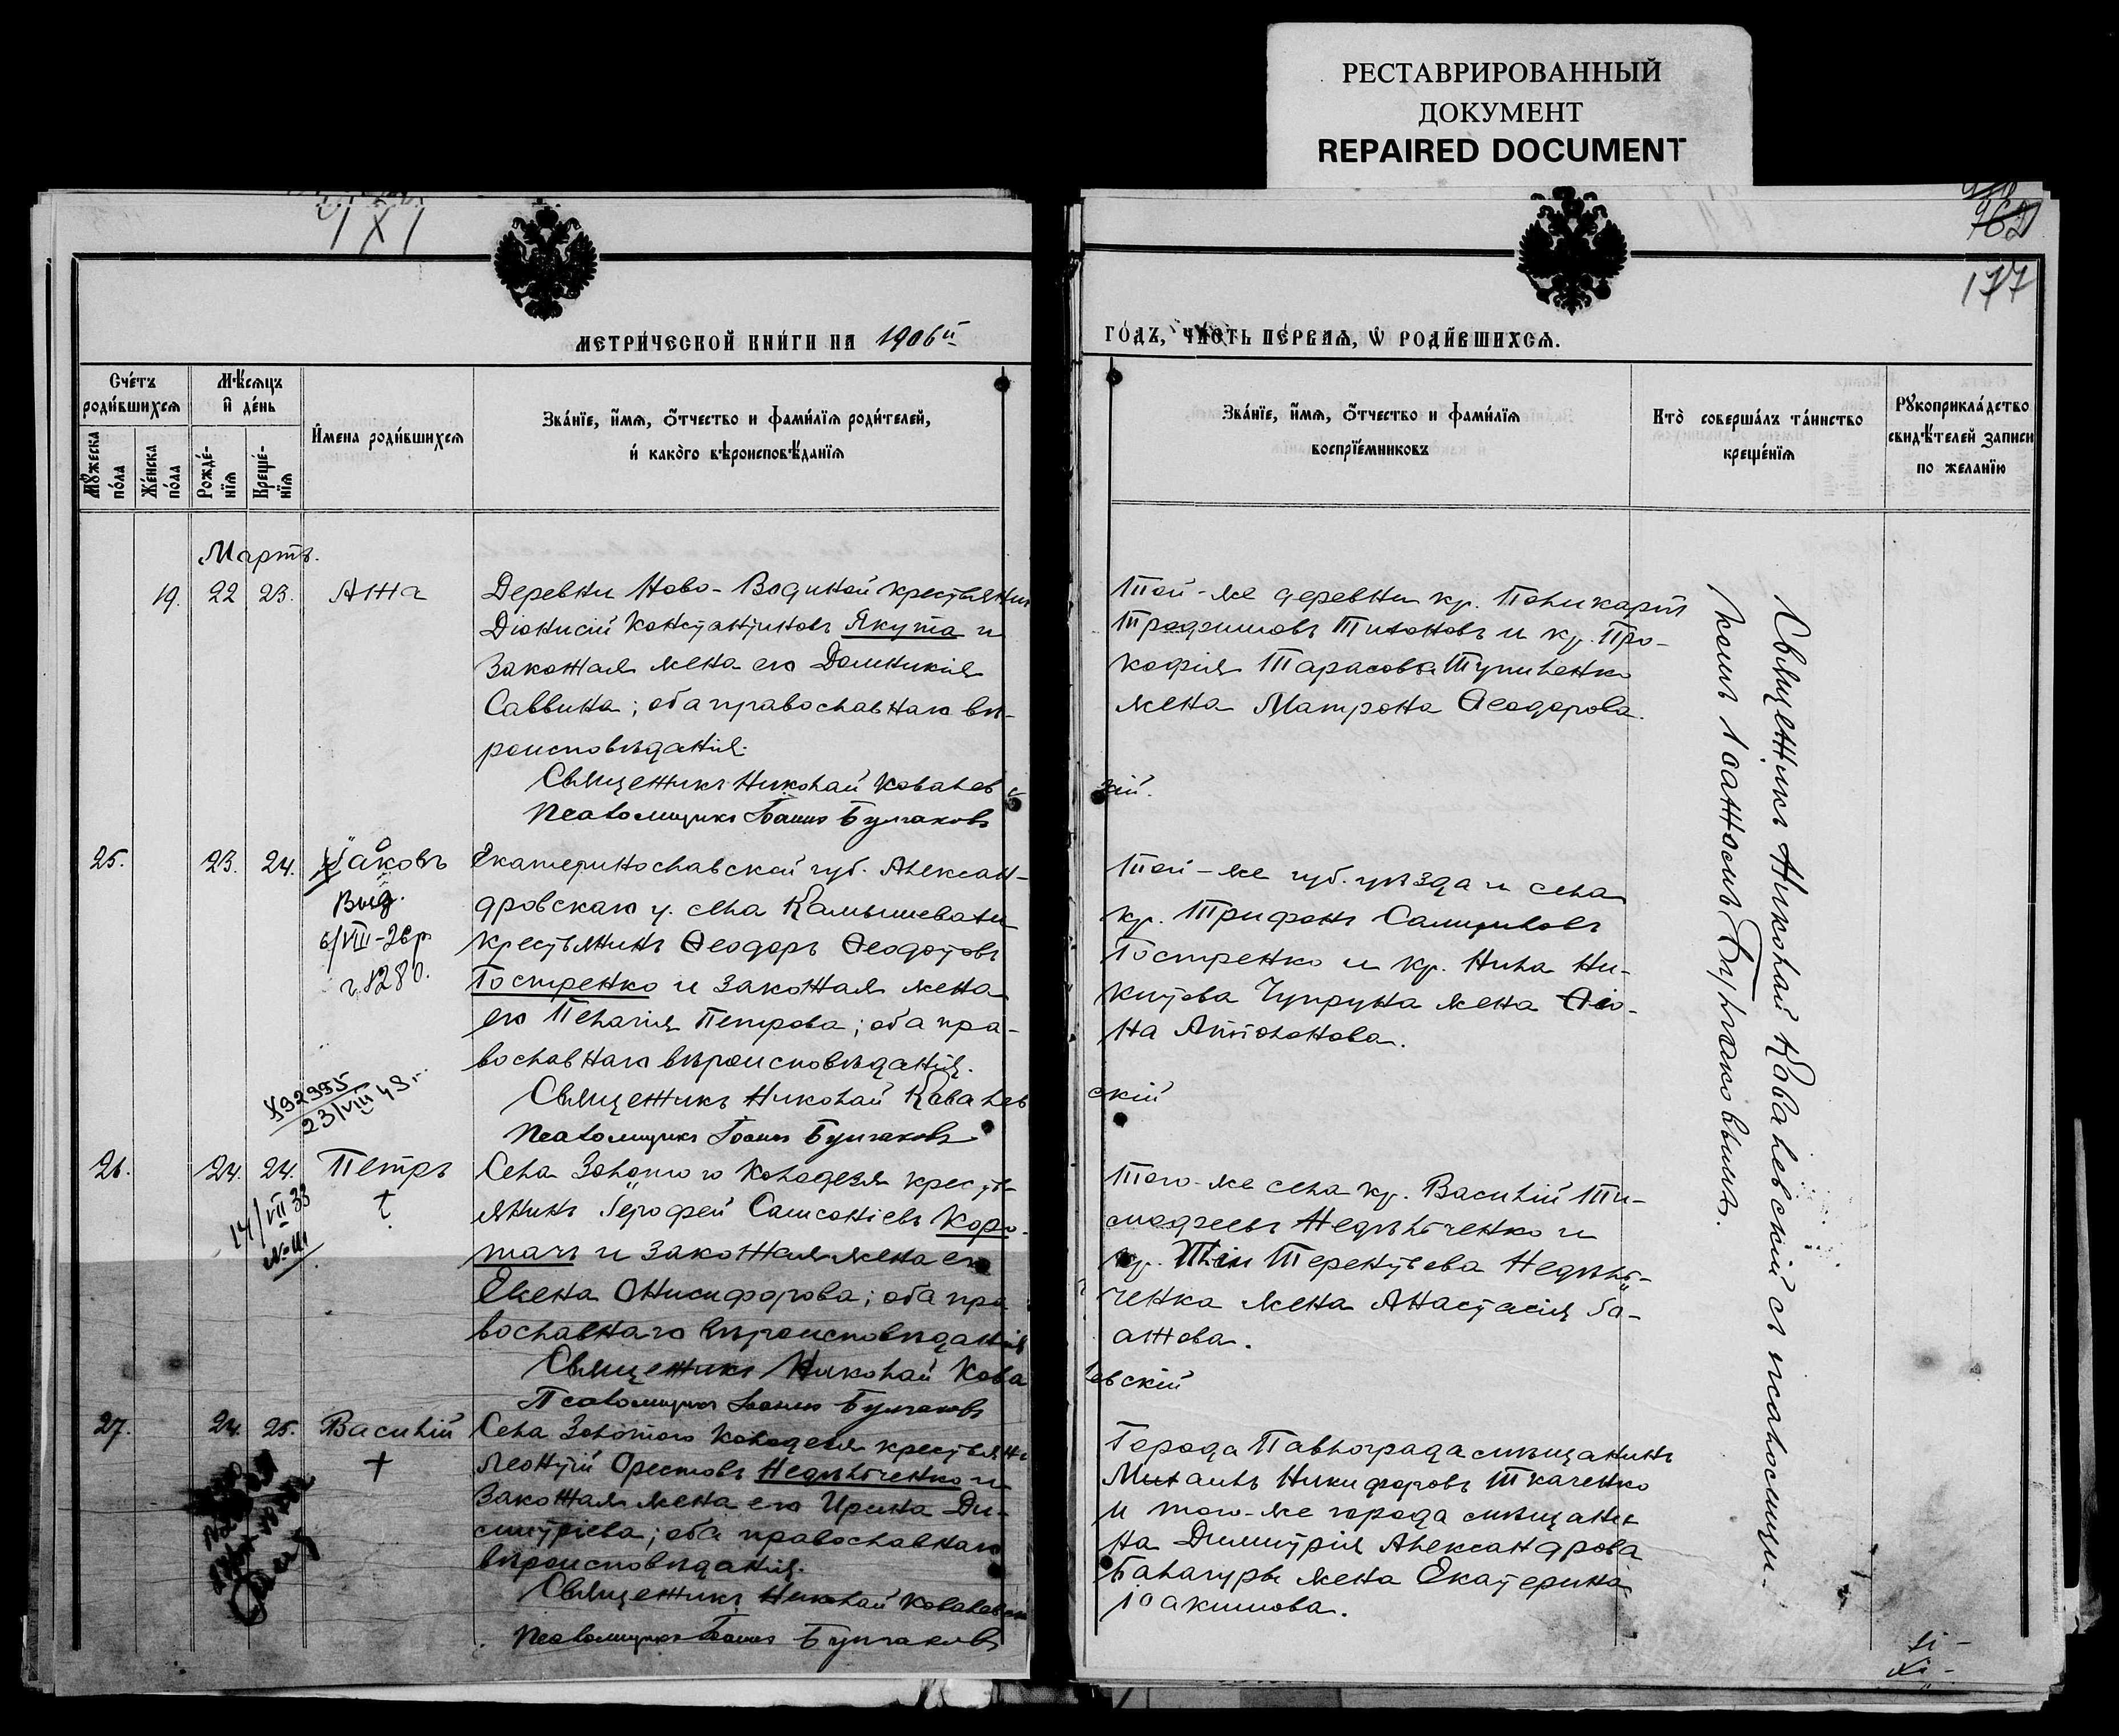 РЕСТАВРИРОВАННЫЙ
ДОКУМЕНТ
REPAIRED DOCUMENT
177
МЕТРИЧЕСКОЙ КНИГИ НА 1906й
ГОДЪ, ЧАСТЬ ПЕРВАѦ, Ѡ РОДИВШИХСѦ.
Счетъ родившихсѧ
Мѣсѧцъ и день
Мꙋжеска пола
Женска пола
Рожде-нїѧ
Креще-нїѧ
Имена родившихсѧ
Званїе, имѧ, ѻтчество и фамилїѧ родителей,
и какого вѣроисповѣданїѧ
Званїе, имѧ, ѻтчество и фамилїѧ
воспрїемниковъ
Кто совершалъ таинство
крещенїѧ
Рꙋкоприкладство
свидѣтелей записи
по желанїю
Мартъ.
19. 22 23. Анна
Деревни Ново-Водиной крестьянинъ
Діонисій Константиновъ Якута и
законная жена его Домникія
Саввина; оба православнаго вѣ-
роисповѣданія.
Священникъ Николай Ковалев
Псаломщикъ Іоаннъ Булгаковъ
Той-же деревни кр. Поликарпъ
Трофимовъ Тихоновъ и кр. Про-
кофія Тарасова Тупиленко
жена Матрона Ѳеодорова.
скій.
25. 23. 24. Іаковъ
Выд.
6/VIII-26 р.
Екатеринославской губ. Алексан-
дровскаго у. села Камышевати
крестьянинъ Ѳеодоръ Ѳеодотовъ
Гостренко и законная жена
его Пелагія Петрова; оба пра-
вославнаго вѣроисповѣданія.
Священникъ Николай Ковалев
Псаломщикъ Іоаннъ Булгаковъ
Той-же губ. уѣзда и села
кр. Трифонъ
Гостренко и кр. Нила Ни-
китова Чупруна жена
на
скій
23/VIII 49 г.
26. 24. 24. Петръ
14/VII 33
Села Золотого Колодезя кресть-
янинъ Іерофей Самсоніевъ Коро-
тачъ и законная жена его
Елена Онисифорова; оба пра
вославнаго вѣроисповѣданія
Священникъ Николай Кова
Псаломщикъ Іоаннъ Булгаковъ
Того-же села кр. Василій Ти-
мофеевъ Недѣльченко и
кр. Терентьева Недѣль-
ченка жена Анастасія Іо-
аннова.
левскій
27. 24. 25. Василій
Села Золотого Колодезя крестьянинъ
Леонтій Орестовъ Недѣльченко и
законная жена его Ирина Ди-
митріева; оба православнаго
вѣроисповѣданія.
Священникъ Николай Ковалевскій
Псаломщикъ Іоаннъ Булгаковъ
Города Павлограда мѣщанинъ
Михаилъ Никифоровъ Ткаченко
и того-же города мѣщани-
на Димитрія Александрова
Балагуры жена Екатерина
Іоакимова.
Священникъ Николай Ковалевскій съ псаломщи-
комъ Іоанномъ Булгаковымъ.